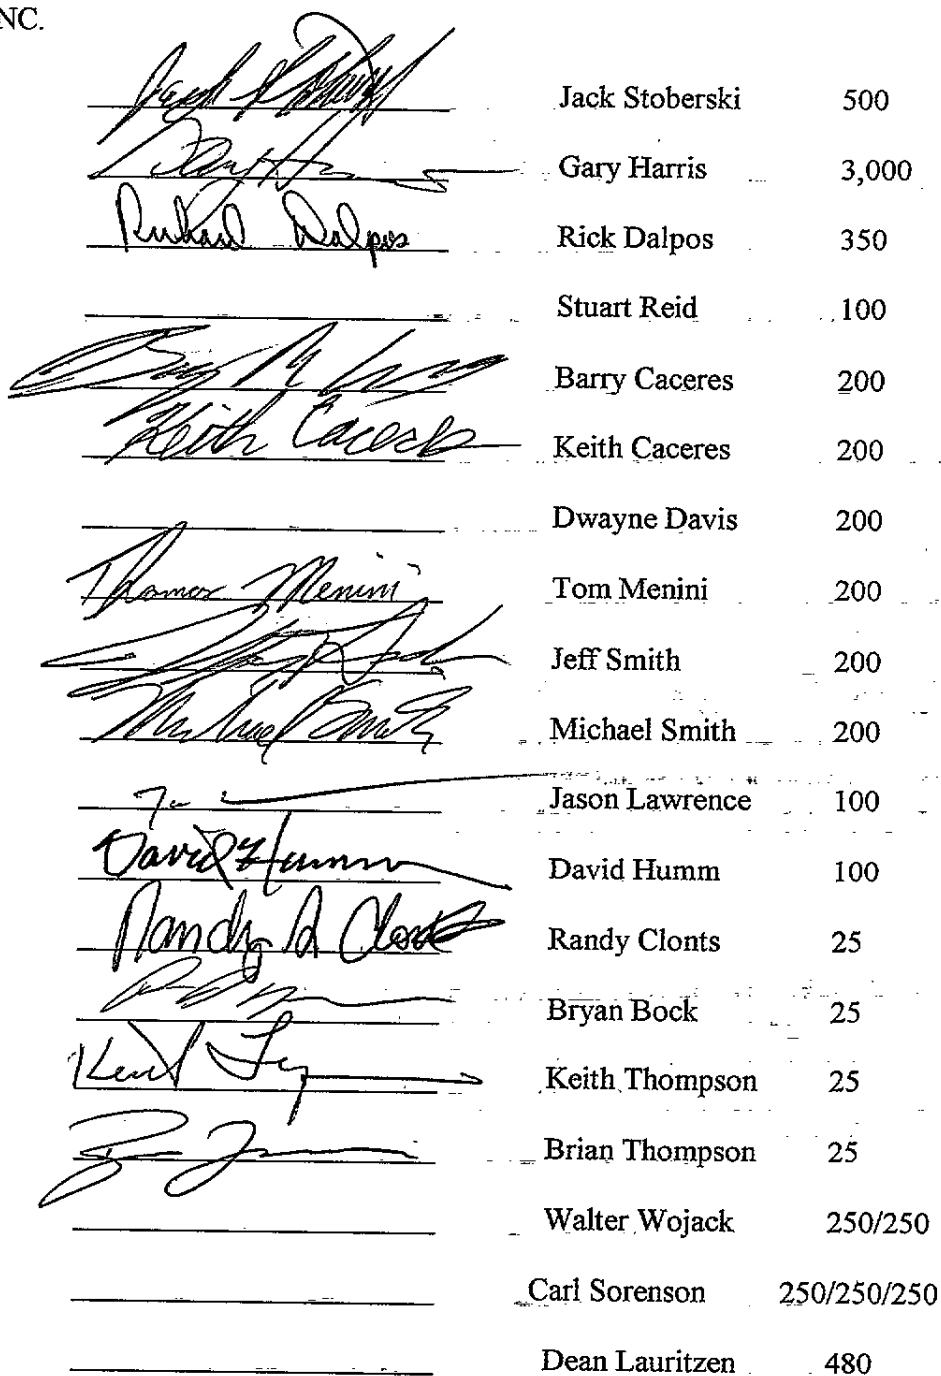 NC.
Jack Stoberski 500
Gary Harris 3,000
Richard Dalpos Rick Dalpos 350
Stuart Reid 100
Barry Caceres 200
Keith Caceres Keith Caceres 200
Dwayne Davis 200
Thomas Menini Tom Menini 200
Jeff Smith 200
Michael Smith Michael Smith 200
Jason Lawrence 100
David Humm David Humm 100
Randy Clonts Randy Clonts 25
Bryan Bock 25
Keith Thompson 25
Brian Thompson 25
Walter Wojack 250/250
Carl Sorenson 250/250/250
Dean Lauritzen 480